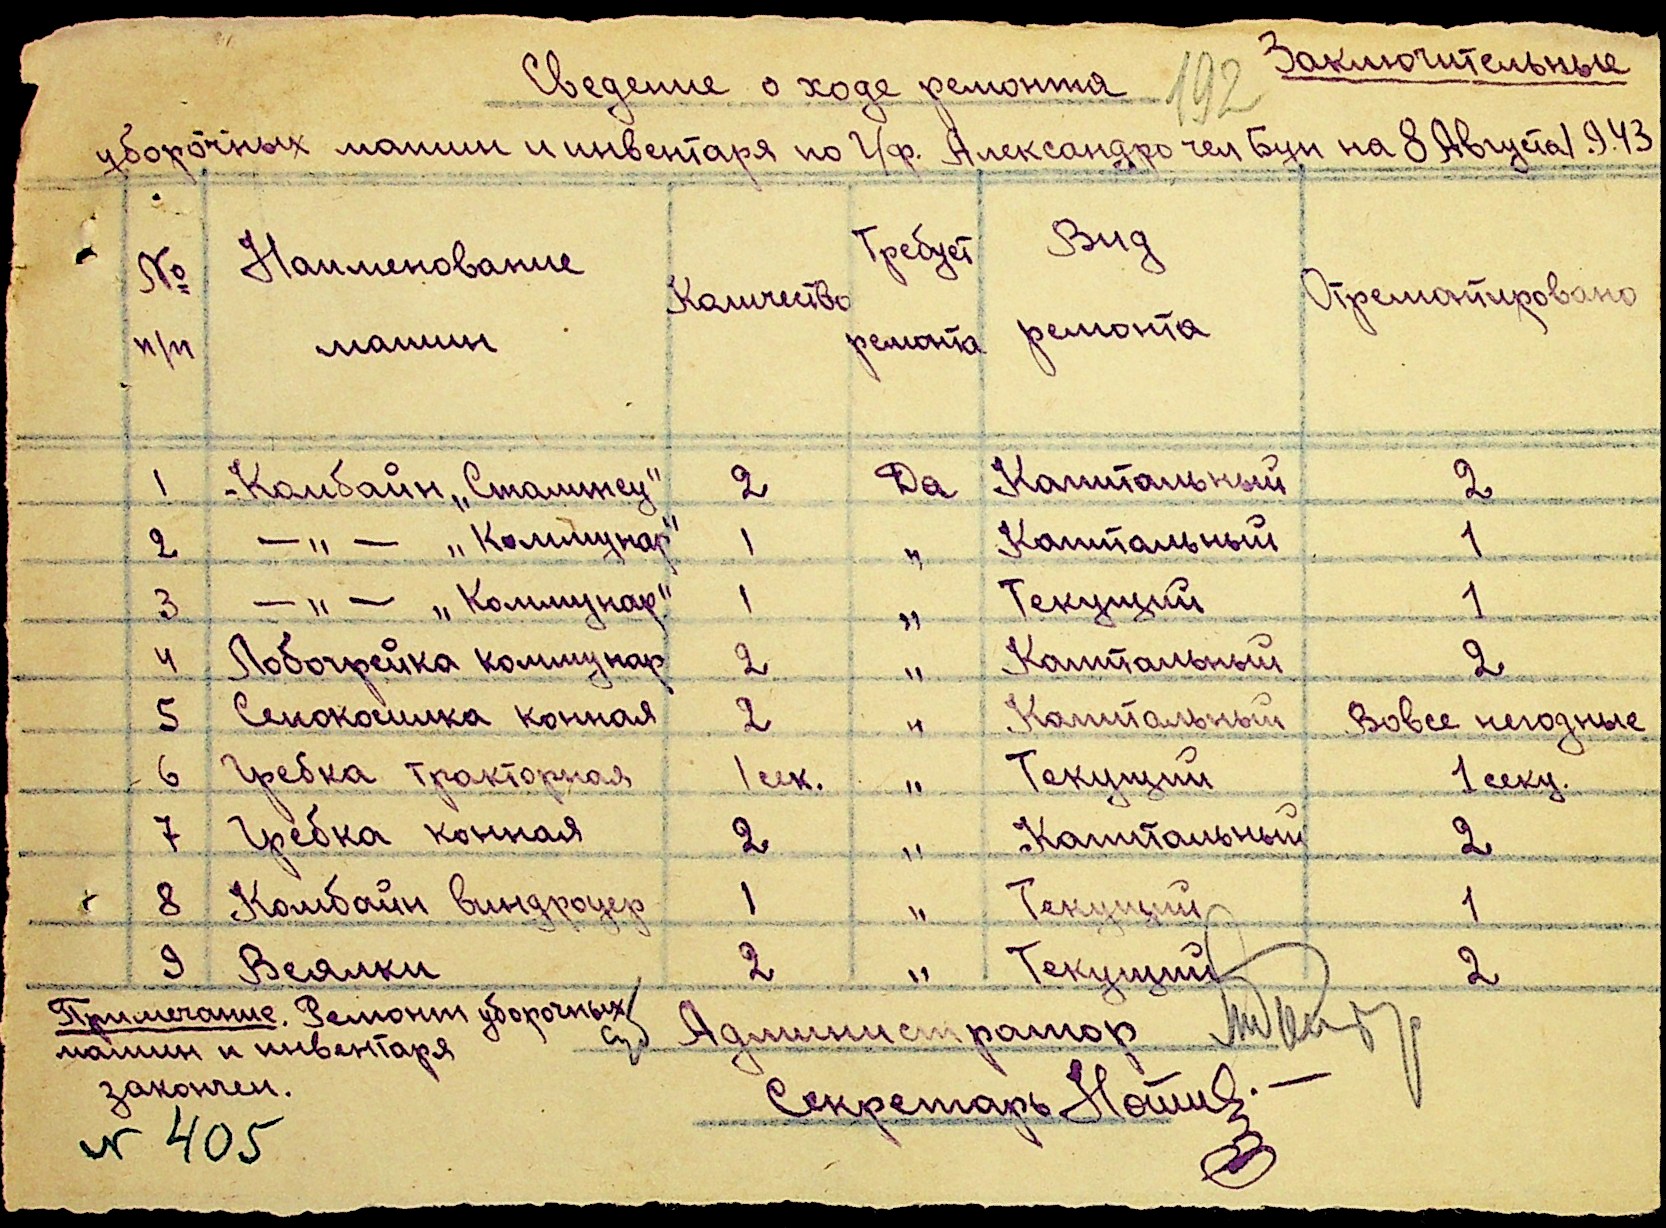 Заключительные
Сведение о ходе ремонта 192
уборочных машин и инвентаря по Г/ф. Александро чел Бун на 8 Августа 1943
№ п/п Наименование машин Количество Требует ремонта Вид ремонта Отремонтировано
1 Комбайн „Сталинец" 2 Да Капитальный 2
2 — " — „Коммунар" 1 " Капитальный 1
3 — " — „Коммунар" 1 " Текущий 1
4 Лобогрейка коммунар 2 " Капитальный 2
5 Сенокосилка конная 2 " Капитальный Вовсе негодные
6 Гребка тракторная 1 сек. " Текущий 1 секц.
7 Гребка конная 2 " Капитальный 2
8 Комбайн виндроуер 1 " Текущий 1
9 Веялки 2 " Текущий 2
Примечание. Ремонт уборочных
машин и инвентаря
закончен.
Администратор
Секретарь
N 405